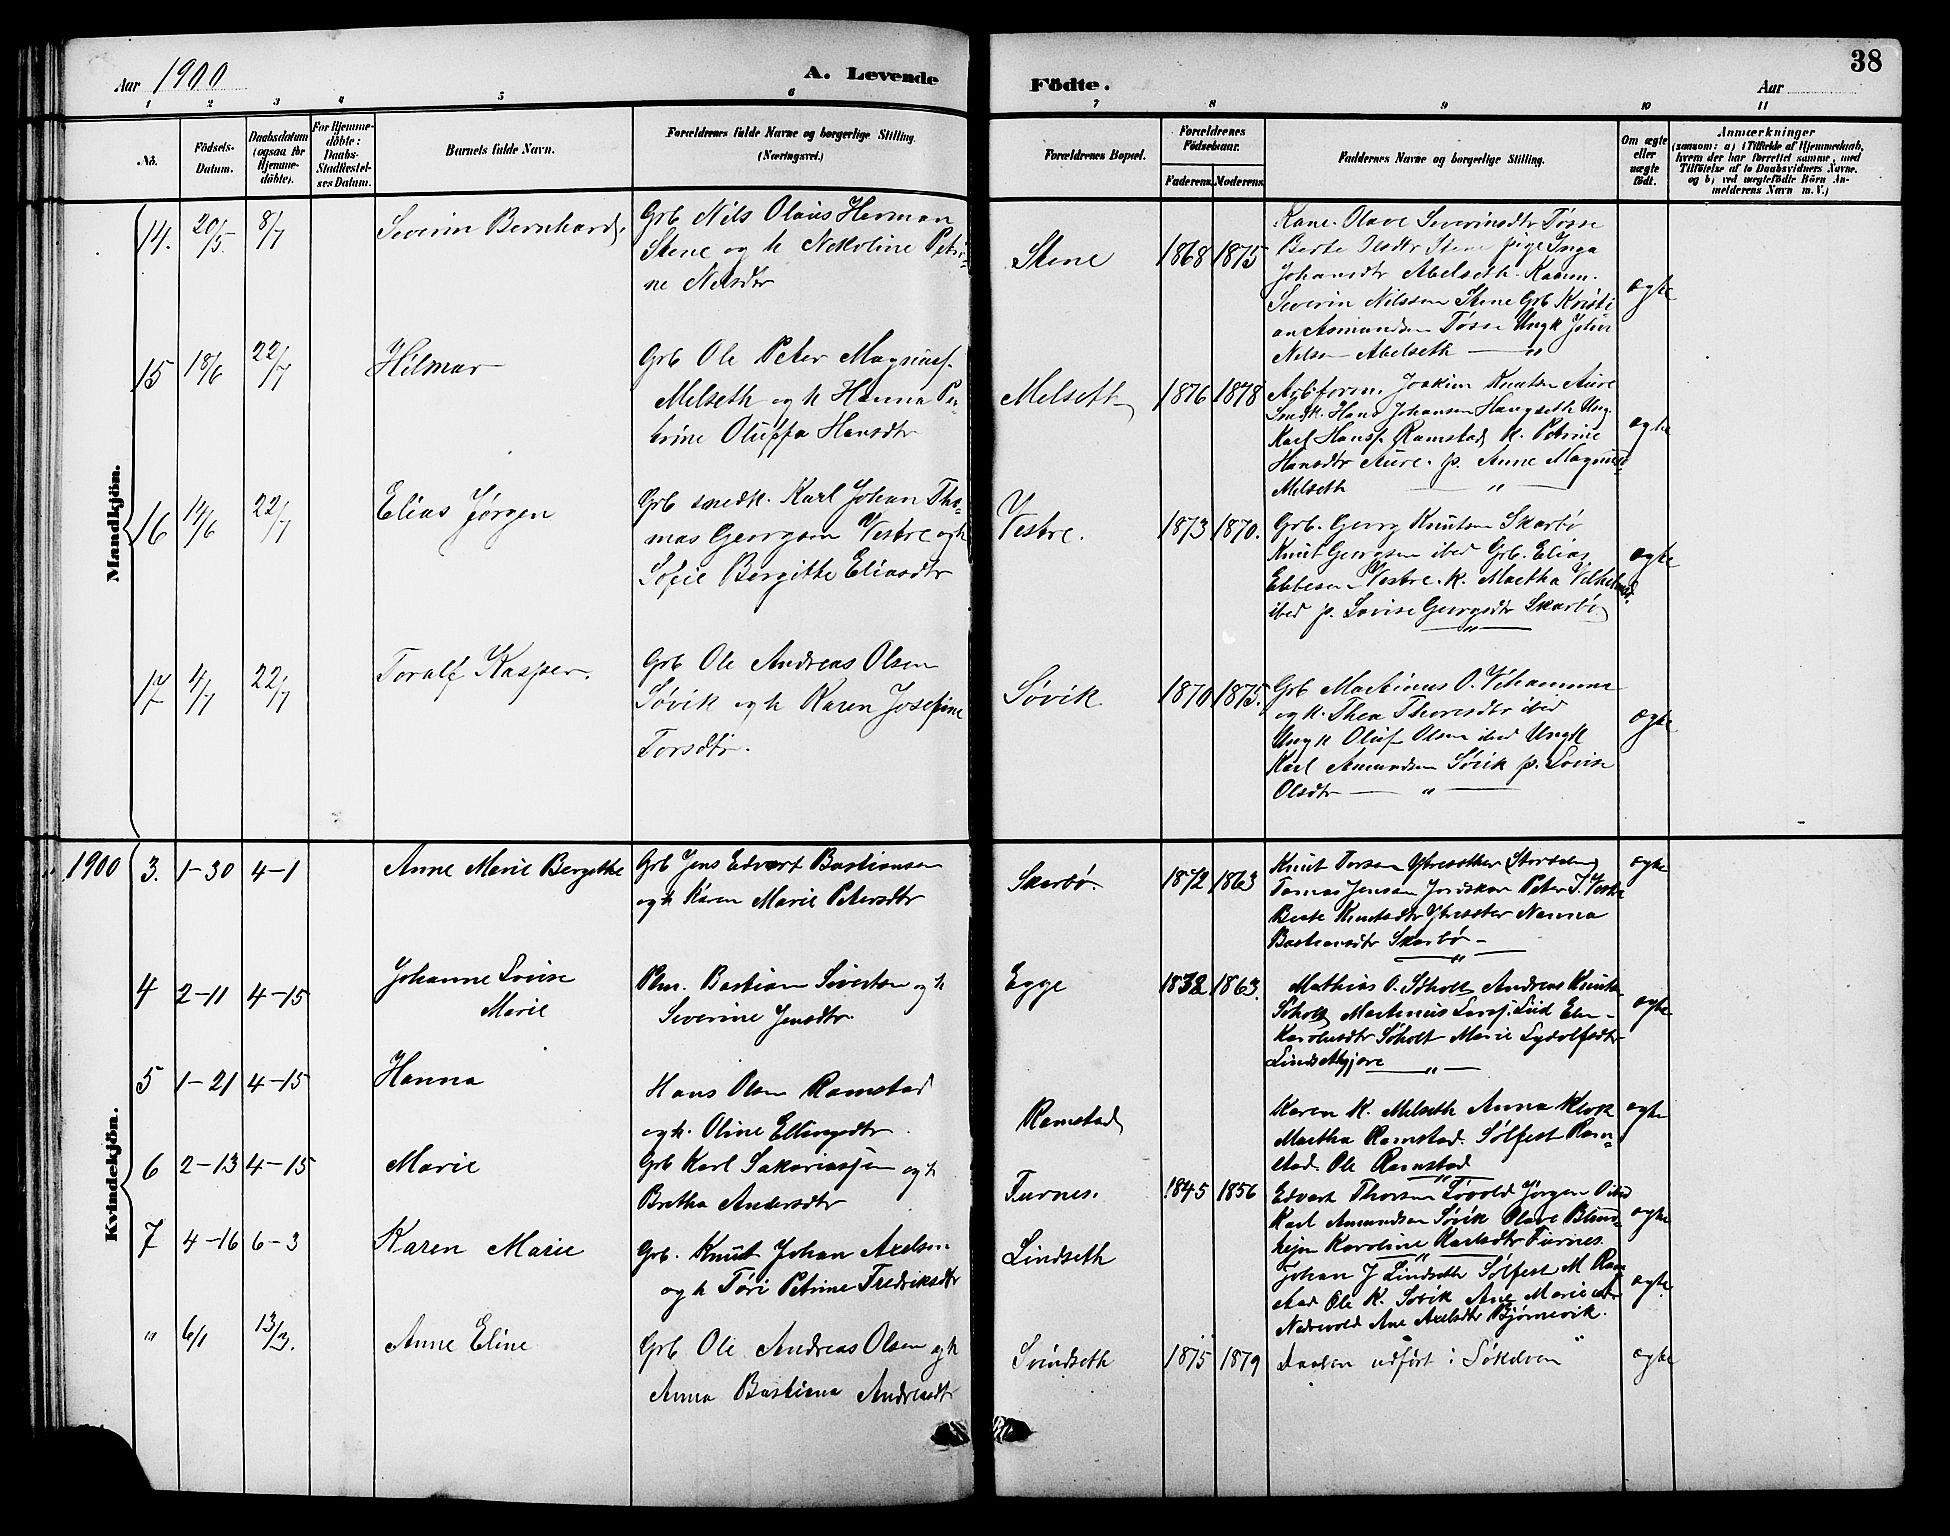 Aar 1900
A. Levende
Fødte.
Aar
38
1 2 3 4 5 6 7 8 9 10 11
No.
Fødsels-
Datum.
Daabsdatum
(ogsaa for
Hjemme-
døbte).
For Hjemme-
døbte:
Daabs-
Stadfæstel-
ses Datum.
Barnets fulde Navn.
Forældrenes fulde Navne og borgerlige Stilling.
(Næringsvei.)
Forældrenes Bopæl.
Forældrenes
Fødselsaar.
Faderens. Moderens.
Faddernes Navne og borgerlige Stilling.
Om ægte
eller
uægte
født.
Anmærkninger
(saasom: a) i Tilfælde af Hjemmedaab,
hvem der har forrettet samme, med
Tilføielse af to Daabsvidners Navne.
og b) ved uægtefødte Børn An-
melderens Navn m. V.)
Mandkjøn.
14. 20/5 8/7 Severin Bernhard.
Grb Nils Olaus Herman
Stene og h Nekoline Petri-
ne Nelsdtr
Stene 1868 1875
Kane. Olave Severinsdtr Tøsse
Berte Olsdtr Stene pige Inga
Johansdtr Abelseth. Kaarm.
Severin Nilsson Stene Grb Kristi
an Asmundsen Tøsse Ungk Johan
Nelsen Abelseth — " —
ægte
15 18/6 22/7 Hilmar
Grb Ole Peter Magnuss.
Melseth og h Hanna Pe-
trine Oluffa Hansdtr
Melseth 1876 1878
Arbform. Joakim Knutsen Aure
Smdk. Hans Johansen Haugseth Ung.
Karl Hanss. Ramstad K. Petrine
Hansdtr Aure. p. Anne Magnusd
Melseth — " —
ægte
16 14/6 22/7 Elias Jørgen
Grb smedk. Karl Johan Tho-
mas Georgsen Vestre og h
Sofie Bergitte Eliasdtr
Vestre. 1873 1870.
Grb. Georg Knutsen Skarbø
Knut Georgsen ibed Grb. Elias
Ebbesen Vestre. K. Martha Vilhelmsd.
ibed p. Lovise Georgsdtr Skarbø
— " —
ægte
17 4/7 22/7 Toralf Kasper.
Grb Ole Andreas Olsen
Søvik og h Karen Josefine
Torsdtr.
Søvik 1870 1875.
Grb Martinus O. Vehamma
og K. Thea Thoresdtr ibed
Ungk Oluf Olsen ibed Ungk
Karl Amundsen Søvik p. Lovise
Olsdtr — " —
ægte
1900
Kvindekjøn.
3. 1-30 4-1 Anne Marie Bergitte
Grb Jens Edvart Bastiansen
og h Karen Marie Petersdtr
Skarbø. 1872 1863
Knut Torsen Ytresæther (Stordalen)
Tomas Jensen Jordskar Peter J. Vestre
Berte Knutsdtr Ytresæter Nanna
Bastiansdtr Skarbø —
— " —
ægte
4 2-11 4-15 Johanne Lovise
Marie
Plm. Bastian Sivertsen og h
Severine Jensdtr
Egge 1832 1863.
Mathias O. Søholt Andreas Knuts.
Søholt Martinus Larsj. Lied Elen
Karolusdtr Søholt Marie Lydolfsdtr
Lindsethgjære — " —
ægte
5 1-21 4-15 Hanna
Hans Olsen Ramstad
og h. Oline Ellingsdtr
Ramstad
Karen K. Melseth Anna Klok
Martha Ramstad. Sølfest Ram-
stad. Ole Ramstad
— " —
ægte
6 2-13 4-15 Marie
Grb Karl Sakariassen og h
Bretha Andersdtr
Furnes. 1845 1856
Edvart Thorsen Løvold Jørgen O ibed
Karl Amundsen Søvik Olave Blind-
hejm Karoline Karlsdtr Furnes.
— " —
ægte
7 4-16 6-3 Karen Marie
Grb. Knut Johan Axelsen
og h Tøri Petrine Fredriksdtr
Lindseth
Johan J Lindseth Sølfest M Ram
stad Ole K. Søvik Ane Marie Adr
Nedrevold Ane Axelsdtr Bjørnevik.
ægte
" 6/1 13/3. Anne Eline
Grb Ole Andreas Olsen og h
Anna Bastiana Andreasdtr
Svindseth 1875 1879
Daaben udført i Søkelven
ægte